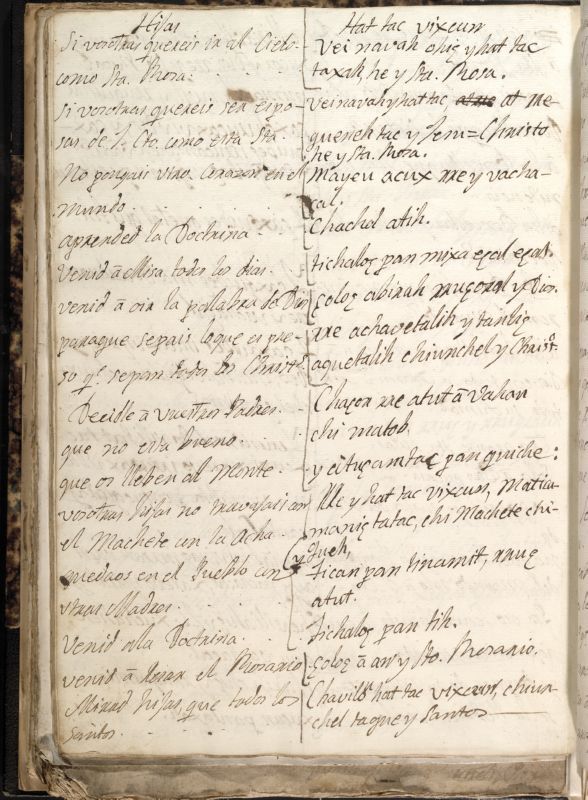 Hijas
Si vosotras quereis ir al Cielo
como Sta. Rosa.
Si vosotras quereis ser espo-
sas de J. Cto. como esta Sta.
No pongais vtro. Corazon en el
mundo.
aprended la Doctrina
Venid â Misa todos los dias.
venid â oir la pallabra de Dios
paraque sepais loque es pre-
so qe. sepan todos los Christs.
Decidle â vuestros Padres
que no esta bueno
que os lleben al Monte
vosotras hijas no travajais con
el Machete con la Acha
quedaos en el Pueblo con
vtras Madres.
Venid alla Doctrina
venid â Resar el Rosario
Mirad hijas que todos los
Santos.
Hat tac vixcun
Vei navah ohiç y hat tac
taxah, he y Sta. Rosa.
vei navah y hat tac, at re
queneh tac y Jesu=Christo
he y Sta. Rosa.
Mayeu acux rre y vacha-
xal.
Chachol atih.
tichaloç pan mixa eqal eqal.
çoloç abirah y Dios.
rre achavetalih y tanliç
aquetalih chiunchel y Christs.
Chaçon rre atut â vahan
chi matob.
y cituçamtaç pan quiche:
Rre y hat tac vixcun, Maticia
maniç tatac, chi Machete chi-
y queh,
tican pan tinamit, rruç
atut.
tichaloç pan tih.
çoloç â an y Sto. Rosario.
Chavila hat tac vixcun, chiun-
chel taque y Santos